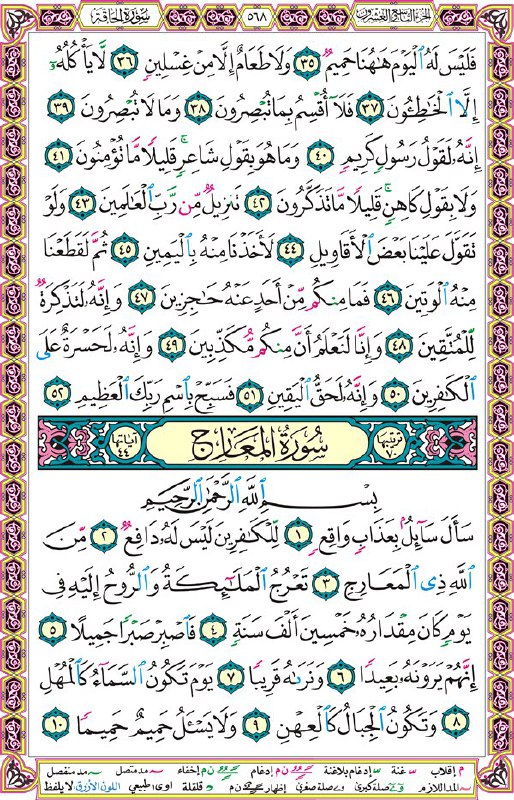 سورة الحاقة
٥٦٨
الجزء التاسع والعشرون
فَلَيْسَ لَهُ الْيَوْمَ هَٰهُنَا حَمِيمٌ ٣٥ وَلَا طَعَامٌ إِلَّا مِنْ غِسْلِينٍ ٣٦ لَّا يَأْكُلُهُۥٓ
إِلَّا الْخَٰطِـُٔونَ ٣٧ فَلَآ أُقْسِمُ بِمَا تُبْصِرُونَ ٣٨ وَمَا لَا تُبْصِرُونَ ٣٩
إِنَّهُۥ لَقَوْلُ رَسُولٍ كَرِيمٍ ٤٠ وَمَا هُوَ بِقَوْلِ شَاعِرٍ ۚ قَلِيلًا مَّا تُؤْمِنُونَ ٤١
وَلَا بِقَوْلِ كَاهِنٍ ۚ قَلِيلًا مَّا تَذَكَّرُونَ ٤٢ تَنزِيلٌ مِّن رَّبِّ الْعَٰلَمِينَ ٤٣ وَلَوْ
تَقَوَّلَ عَلَيْنَا بَعْضَ الْأَقَاوِيلِ ٤٤ لَأَخَذْنَا مِنْهُ بِالْيَمِينِ ٤٥ ثُمَّ لَقَطَعْنَا
مِنْهُ الْوَتِينَ ٤٦ فَمَا مِنكُم مِّنْ أَحَدٍ عَنْهُ حَٰجِزِينَ ٤٧ وَإِنَّهُۥ لَتَذْكِرَةٌ
لِّلْمُتَّقِينَ ٤٨ وَإِنَّا لَنَعْلَمُ أَنَّ مِنكُم مُّكَذِّبِينَ ٤٩ وَإِنَّهُۥ لَحَسْرَةٌ عَلَى
الْكَٰفِرِينَ ٥٠ وَإِنَّهُۥ لَحَقُّ الْيَقِينِ ٥١ فَسَبِّحْ بِاسْمِ رَبِّكَ الْعَظِيمِ ٥٢
ترتيبها ٧٠ سُورَةُ الْمَعَارِجِ آياتها ٤٤
بِسْمِ اللَّهِ الرَّحْمَٰنِ الرَّحِيمِ
سَأَلَ سَآئِلٌۢ بِعَذَابٍ وَاقِعٍ ١ لِّلْكَٰفِرِينَ لَيْسَ لَهُۥ دَافِعٌ ٢ مِّنَ
اللَّهِ ذِي الْمَعَارِجِ ٣ تَعْرُجُ الْمَلَٰٓئِكَةُ وَالرُّوحُ إِلَيْهِ فِي
يَوْمٍ كَانَ مِقْدَارُهُۥ خَمْسِينَ أَلْفَ سَنَةٍ ٤ فَاصْبِرْ صَبْرًا جَمِيلًا ٥
إِنَّهُمْ يَرَوْنَهُۥ بَعِيدًا ٦ وَنَرَىٰهُ قَرِيبًا ٧ يَوْمَ تَكُونُ السَّمَآءُ كَالْمُهْلِ
٨ وَتَكُونُ الْجِبَالُ كَالْعِهْنِ ٩ وَلَا يَسْـَٔلُ حَمِيمٌ حَمِيمًا ١٠
م إقلاب غنة إدغام بلاغنة ن م إدغام ن م إخفاء مد متصل مد منفصل
المد اللازم صلة كبرى وصلة صغرى إظهار ن م قلقلة اوى طبيعي اللون الأزرق لا يلفظ